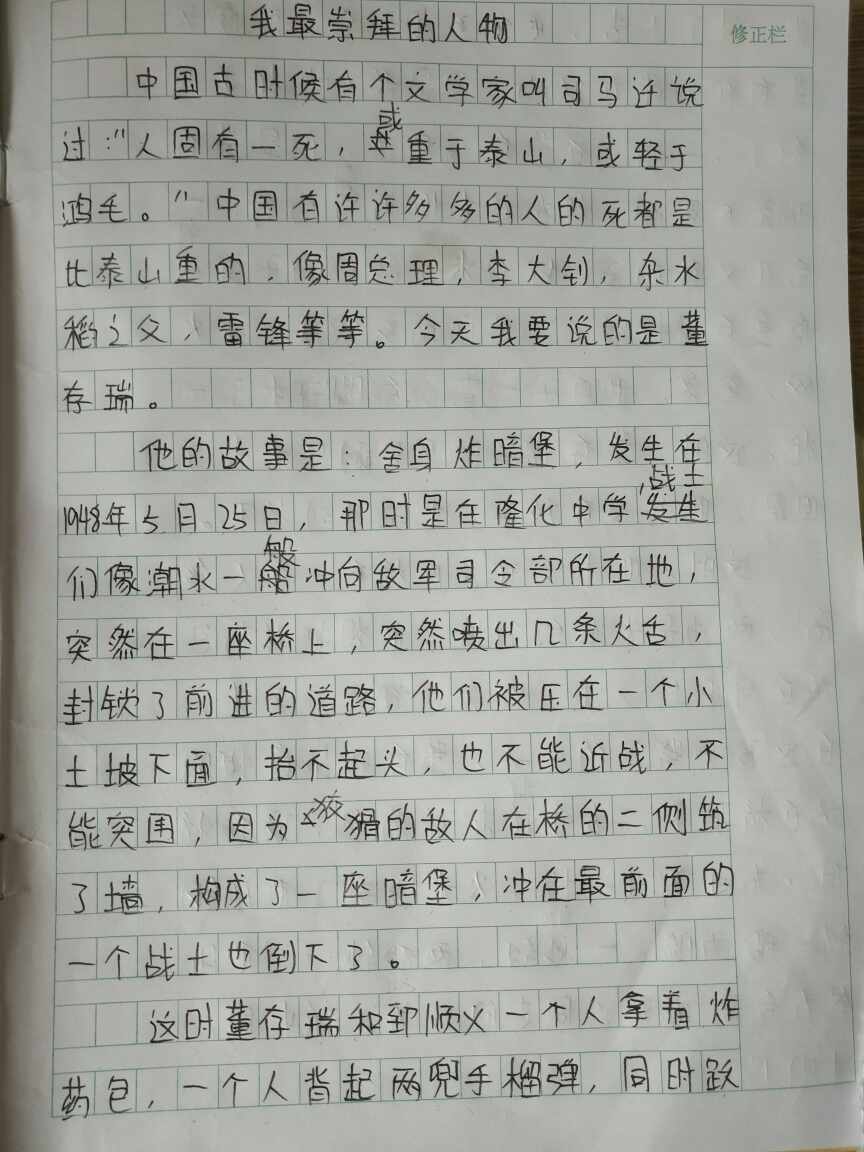 我最崇拜的人物
修正栏
中国古时候有个文学家叫司马迁说
过："人固有一死，或重于泰山，或轻于
鸿毛。"中国有许许多多的人的死都是
比泰山重的，像周总理，李大钊，杂水
稻之父，雷锋等等。今天我要说的是董
存瑞。
他的故事是：舍身炸暗堡，发生在
1948年5月25日，那时是在隆化中学，战士
们像潮水一般冲向敌军司令部所在地，
突然在一座桥上，突然喷出几条火舌，
封锁了前进的道路，他们被压在一个小
土坡下面，抬不起头，也不能近战，不
能突围，因为狡猾的敌人在桥的二侧筑
了墙，构成了一座暗堡，冲在最前面的
一个战士也倒下了。
这时董存瑞和郅顺义一个人拿着炸
药包，一个人背起两兜手榴弹，同时跃